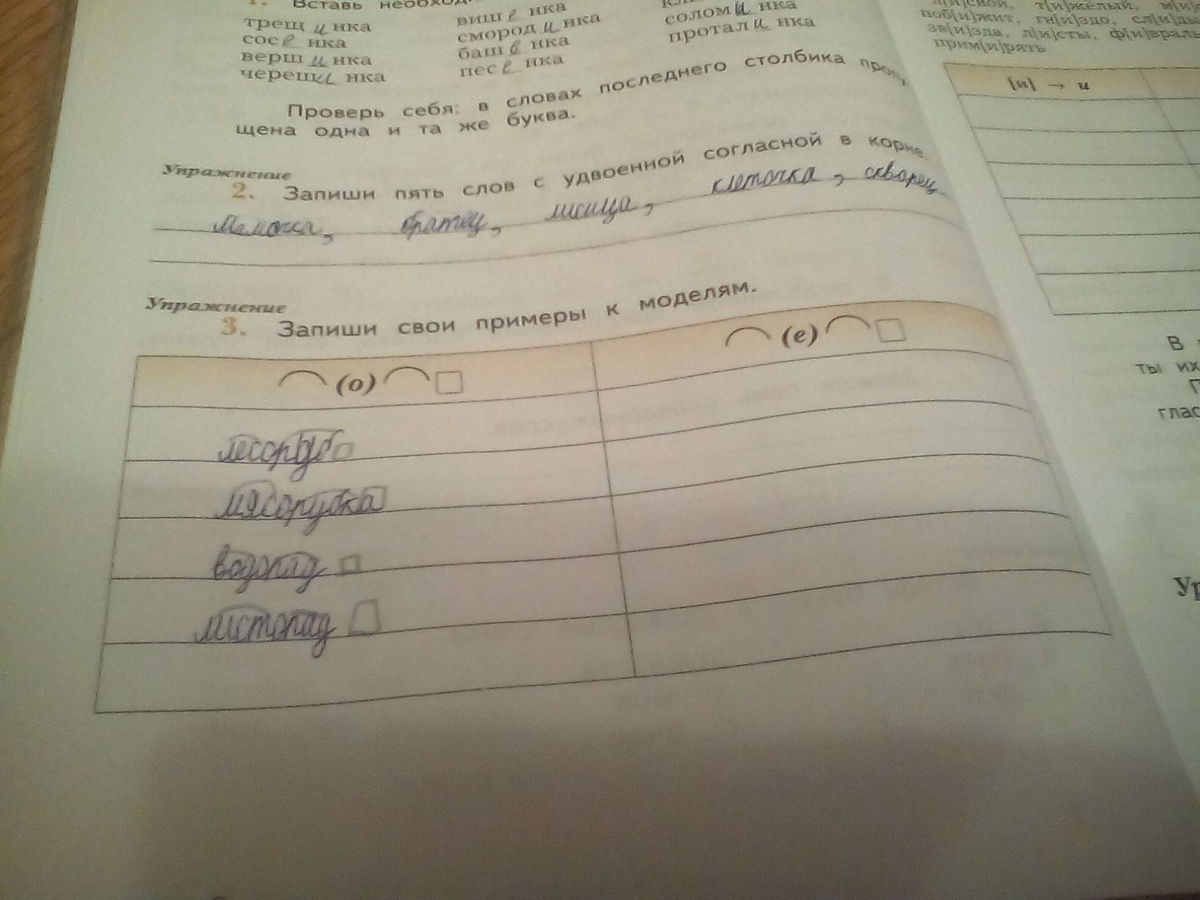 1. Вставь необход
трещ и нка виш е нка
сос е нка смород и нка солом и нка
верш и нка баш е нка протал и нка
череш и нка пес е нка
Проверь себя: в словах последнего столбика пропу
щена одна и та же буква.
Упражнение
2. Запиши пять слов с удвоенной согласной в корне.
братец, лисица, клеточка, скворец
Упражнение
3. Запиши свои примеры к моделям.
(о) (е)
лесоруб
мясорубка
водопад
листопад
л[и]сной, т[и]жёлый, м[и]
поб[и]жит, гн[и]здо, сл[и]ды
зв[и]зда, л[и]сты, ф[и]враль
прим[и]рять
[и] → и
В
ты их
П
глас
Ур